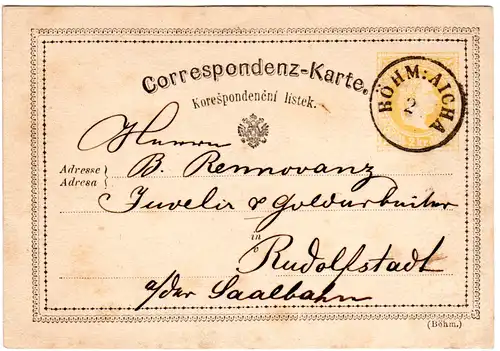 Correspondenz-Karte.
Korešpondenční lístek.
BÖHM: AICHA
2
Herrn
Adresse
Adresa
B. Rennovanz
Juvelir & Goldarbeiter
in
Rudolfstadt
a/der Saalbahn
(Böhm.)